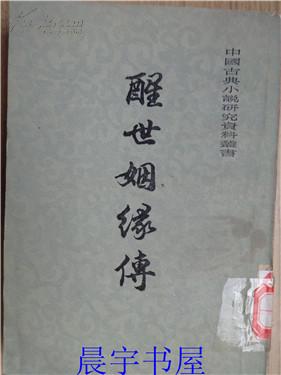 中國古典小說研究資料叢書
醒世姻緣傳
晨宇书屋